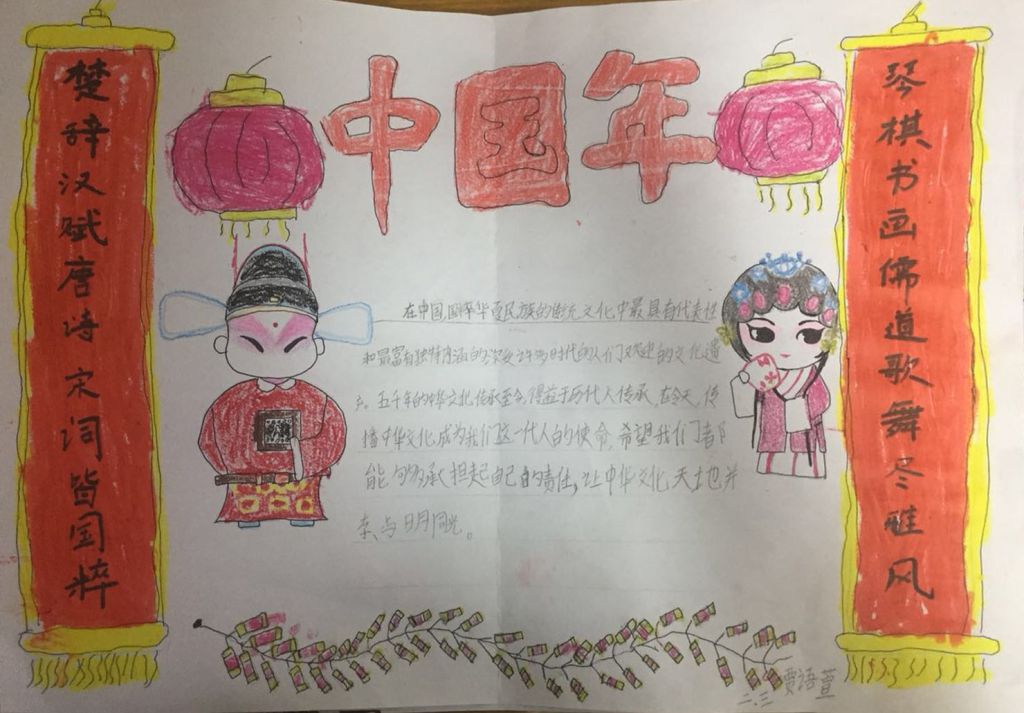 中国年
楚辞汉赋唐诗宋词皆国粹
琴棋书画儒道歌舞尽雅风
在中国,国粹华夏民族的传统文化中最具有代表性
和最富有独特内涵的 时代的人们 的文化遗
产。五千年的中华文化传承至今,得益于历代人传承,在今天,传
播中华文化成为我们这一代人的使命,希望我们都
能够承担起自己的责任,让中华文化天地并
存、与日月同光。
二.三 贾语萱